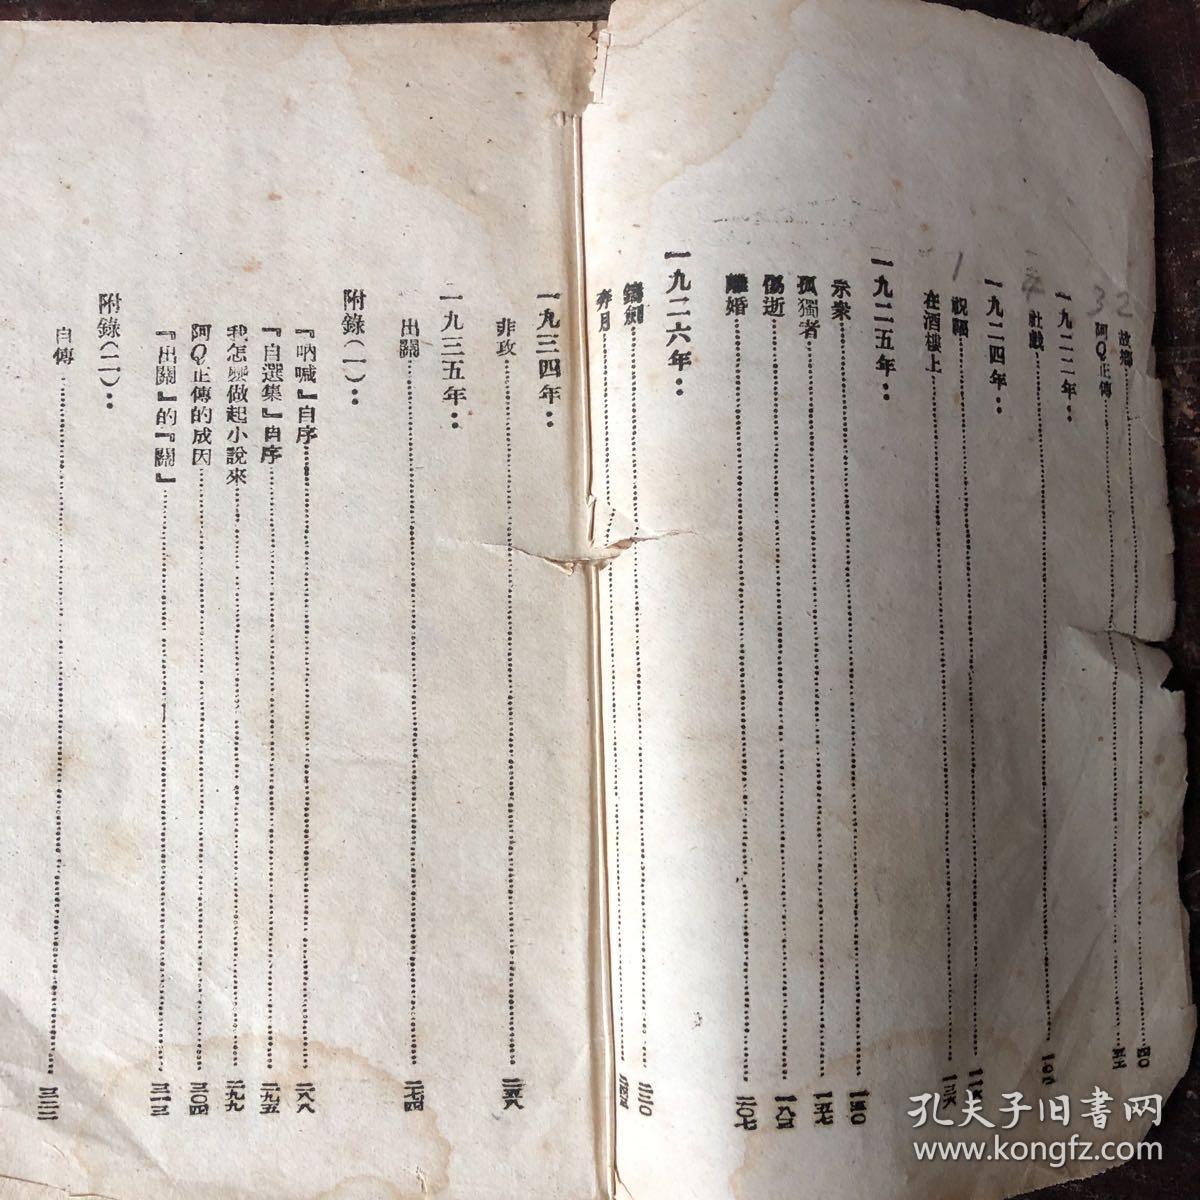 故鄉……四〇
阿Q正傳……五五
一九二二年：
社戲
一九二四年：
祝福
在酒樓上……一三六
一九二五年：
示衆……一五〇
孤獨者……一五七
傷逝
離婚……二〇七
一九二六年：
鑄劍……二三〇
奔月
一九三四年：
非攻……二五八
一九三五年：
出關……二七四
附錄（一）：
『吶喊』自序……二八八
『自選集』自序……二九五
我怎麼做起小說來……二九九
阿Q正傳的成因……三〇四
『出關』的『關』……三一三
附錄（二）：
自傳……三二二
32
1
孔夫子旧書网
www.kongfz.com